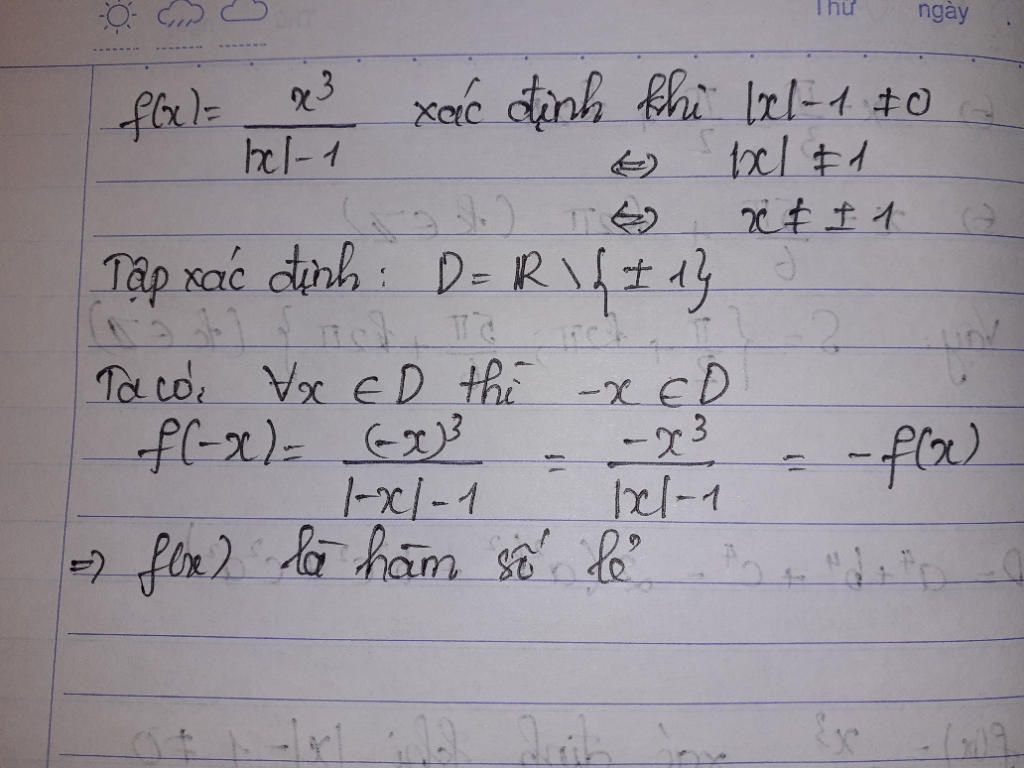 Thứ ngày
f(x) = x³/(|x| - 1) xác định khi |x| - 1 ≠ 0
⇔ |x| ≠ 1
⇔ x ≠ ± 1
Tập xác định: D = ℝ \ {± 1}
Ta có: ∀x ∈ D thì -x ∈ D
f(-x) = (-x)³/(|-x| - 1) = -x³/(|x| - 1) = -f(x)
⇒ f(x) là hàm số lẻ